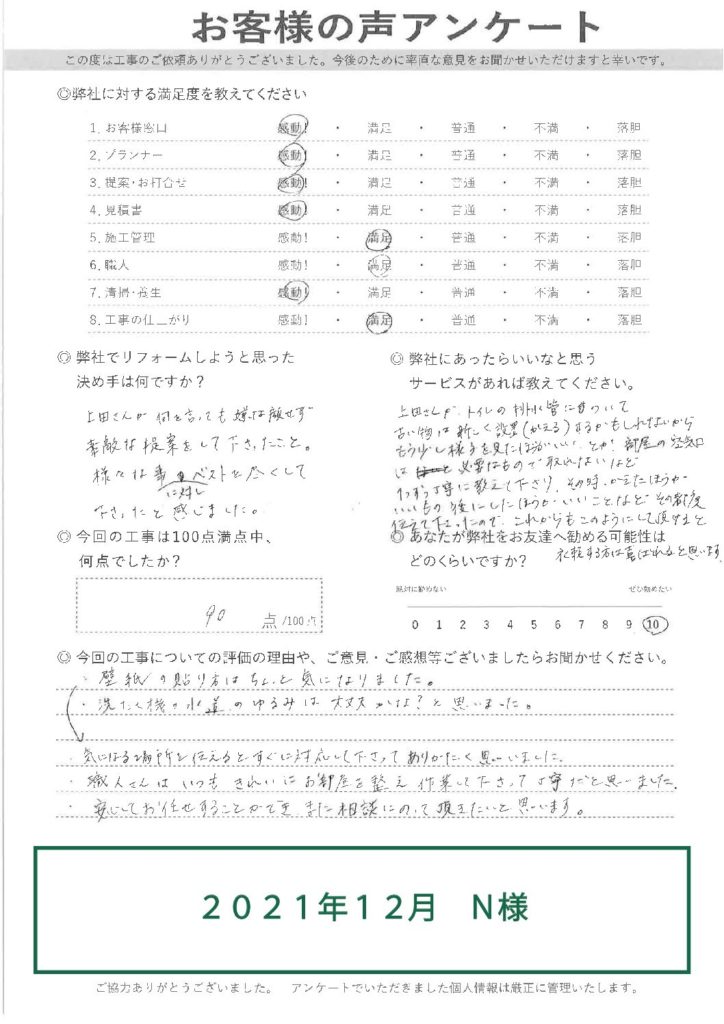 お客様の声アンケート
この度は工事のご依頼ありがとうございました。今後のために率直な意見をお聞かせいただけますと幸いです。
◎弊社に対する満足度を教えてください
1. お客様窓口 感動! ・ 満足 ・ 普通 ・ 不満 ・ 落胆
2. プランナー 感動! ・ 満足 ・ 普通 ・ 不満 ・ 落胆
3. 提案・お打合せ 感動! ・ 満足 ・ 普通 ・ 不満 ・ 落胆
4. 見積書 感動! ・ 満足 ・ 普通 ・ 不満 ・ 落胆
5. 施工管理 感動! ・ 満足 ・ 普通 ・ 不満 ・ 落胆
6. 職人 感動! ・ 満足 ・ 普通 ・ 不満 ・ 落胆
7. 清掃・養生 感動! ・ 満足 ・ 普通 ・ 不満 ・ 落胆
8. 工事の仕上がり 感動! ・ 満足 ・ 普通 ・ 不満 ・ 落胆
◎ 弊社でリフォームしようと思った
決め手は何ですか？
上田さんが 何を言っても嫌な顔せず
素敵な提案をして下さったこと。
様々な事 ベストを尽くして
に対し
下さったと感じました。
◎ 弊社にあったらいいなと思う
サービスがあれば教えてください。
上田さんが、トイレの排水管について
古い物は新しく設置(かえる)するかもしれないから
もう少し様子を見たほうがいい、とか 部屋の空気口
は 必要なもので取れないなど
丁寧に教えて下さり、その時、かえたほうが
いいもの 後にしたほうがいいことなど その都度
伝えて下さったので、これからもこのようにして頂けると
依頼する方は喜ばれると思います
◎ 今回の工事は100点満点中、
何点でしたか？
90 点 /100点
◎ あなたが弊社をお友達へ勧める可能性は
どのくらいですか？
絶対に勧めない ぜひ勧めたい
0 1 2 3 4 5 6 7 8 9 10
◎ 今回の工事についての評価の理由や、ご意見・ご感想等ございましたらお聞かせください。
・壁紙の貼り方はちょっと気になりました。
・洗たく機の水道のゆるみは大丈夫かな？と思いました。
気になる場所を伝えるとすぐに対応して下さってありがたく思いました。
・職人さんはいつもきれいにお部屋を整え作業して下さって丁寧だと思いました。
・安心してお任せすることができ また相談にのって頂きたいと思います。
2021年12月 N様
ご協力ありがとうございました。 アンケートでいただきました個人情報は厳正に管理いたします。